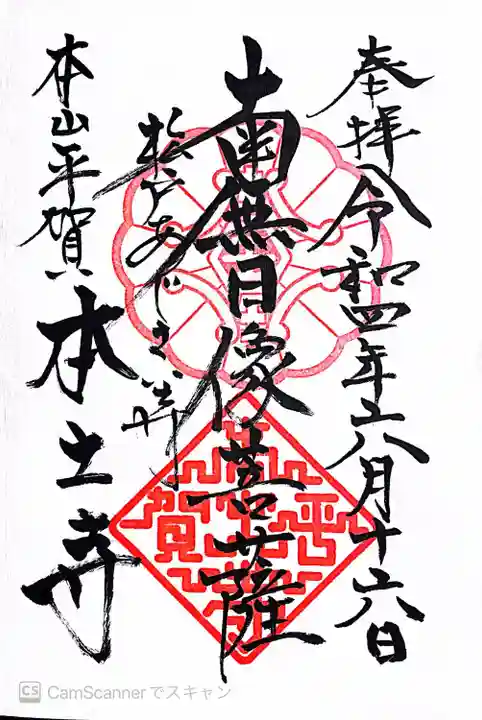 奉拝 令和四年六月十六日
南無日像菩薩
松戸あじさい寺
本山平賀 本土寺
平賀
CS CamScannerでスキャン